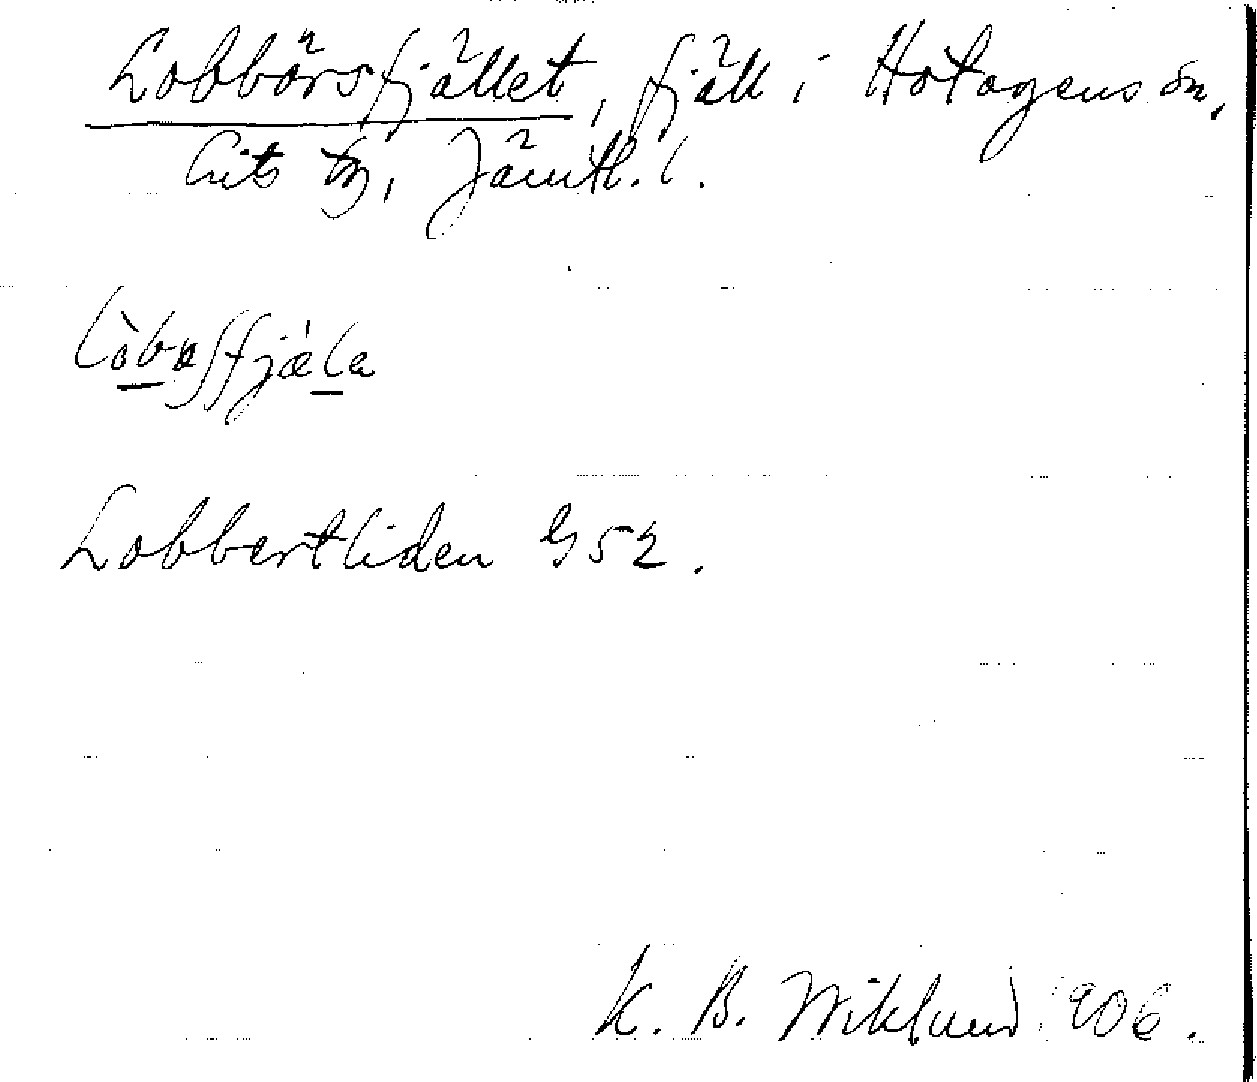 Lobbörsfjället, fjäll i Hotagens sn,
Lits tg, Jämtl. l.
lòbaʃfjäla
Lobbertliden G 52.
K. B. Wiklund 1906.